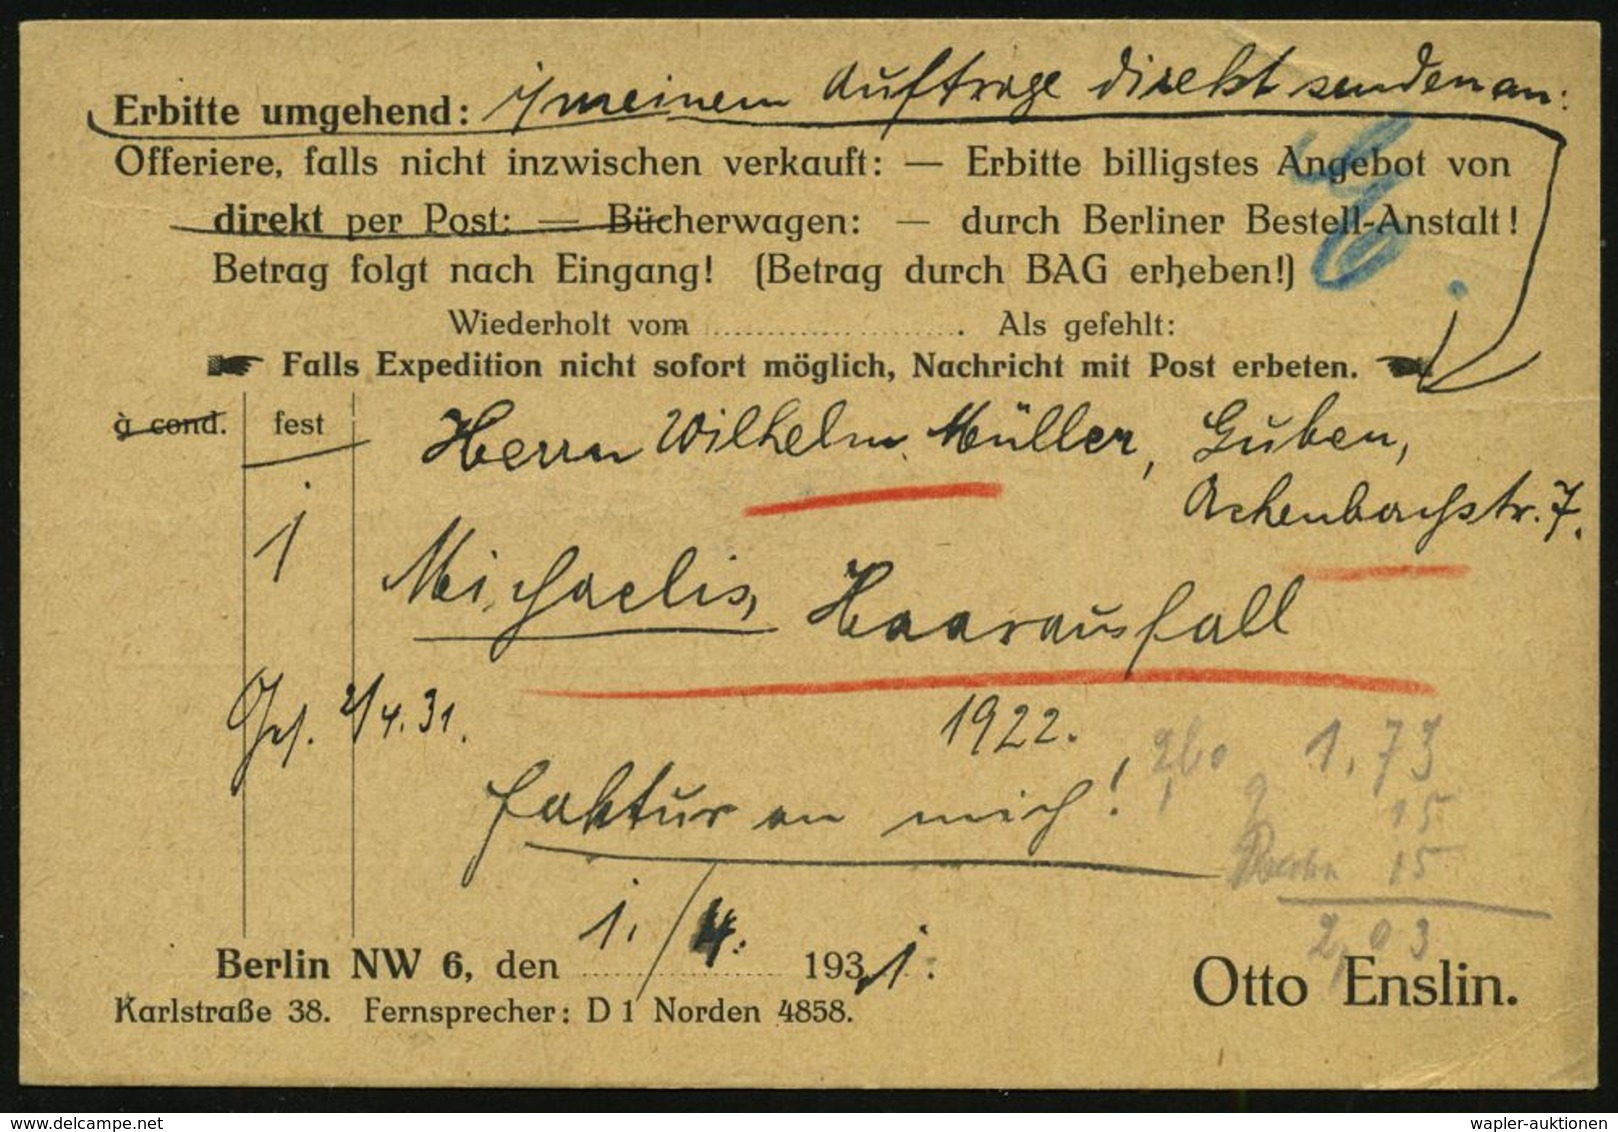 Erbitte umgehend: i/ meinem Auftrage direkt senden an:
Offeriere, falls nicht inzwischen verkauft: — Erbitte billigstes Angebot von
direkt per Post: — Bücherwagen: — durch Berliner Bestell-Anstalt!
Betrag folgt nach Eingang! (Betrag durch BAG erheben!)
Wiederholt vom .................... . Als gefehlt:
Falls Expedition nicht sofort möglich, Nachricht mit Post erbeten.
à cond. fest
Herrn Wilhelm Müller, Guben,
Achenbachstr. 7.
1 Michaelis, Haarausfall
2/4.31. 1922.
1,73
Faktur an mich!
15
15
2,03
Berlin NW 6, den 1./4. 1931.
Karlstraße 38. Fernsprecher: D 1 Norden 4858.
Otto Enslin.
wapler-auktionen